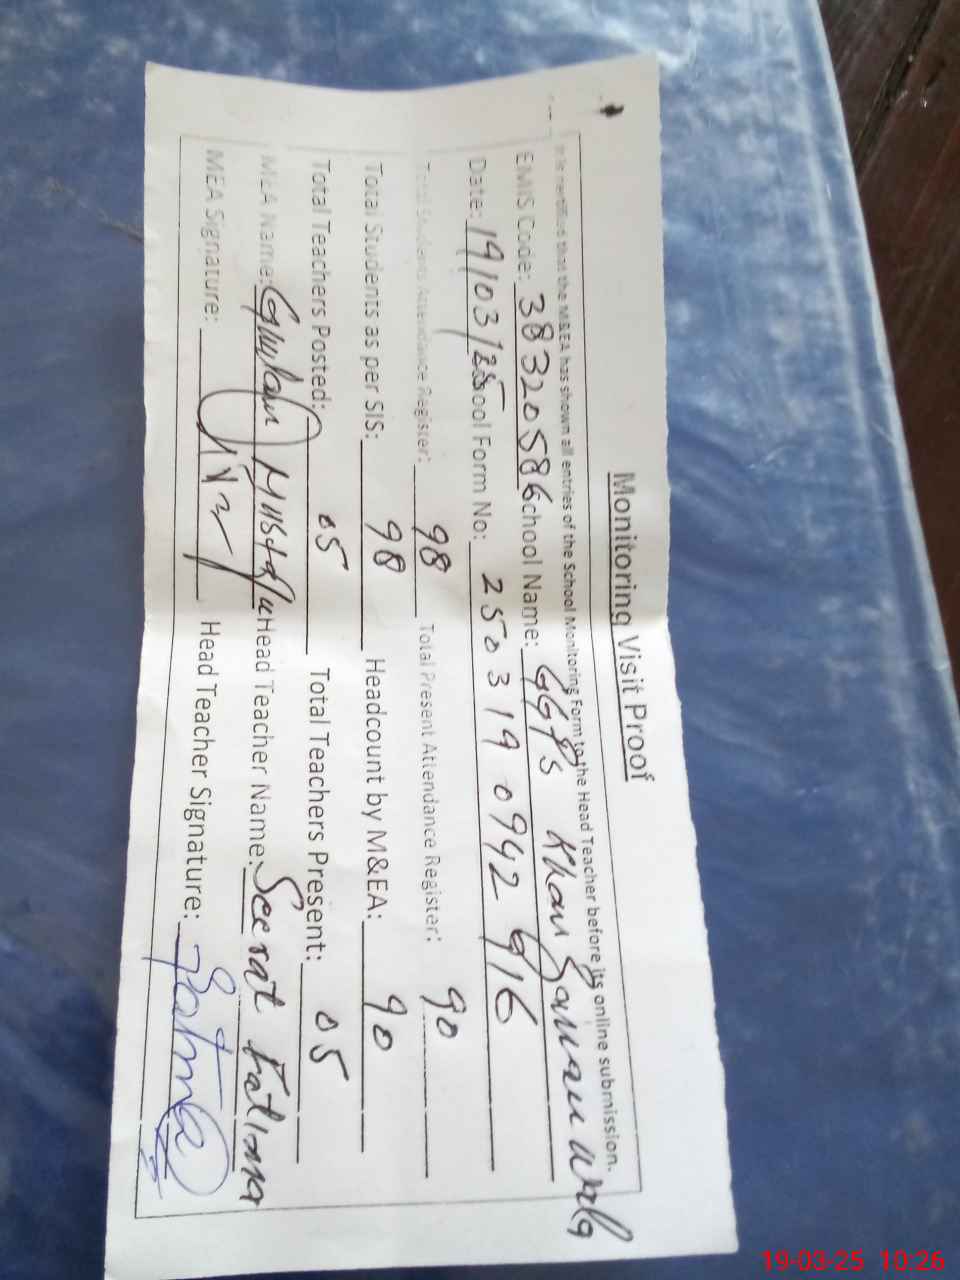 Monitoring Visit Proof
It is certified that the M&EA has shown all entries of the School Monitoring Form to the Head Teacher before its online submission.
EMIS Code: 38320586 School Name: GGPS Khan Zaman wala
Date: 19/03/25 School Form No: 2503190942916
Total Students Attendance Register: 98 Total Present Attendance Register: 90
Total Students as per SIS: 98 Headcount by M&EA: 90
Total Teachers Posted: 05 Total Teachers Present: 05
MEA Name: Ghulam Mustafa Head Teacher Name: Seerat Fatima
MEA Signature: Head Teacher Signature: Fatima
19-03-25 10:26